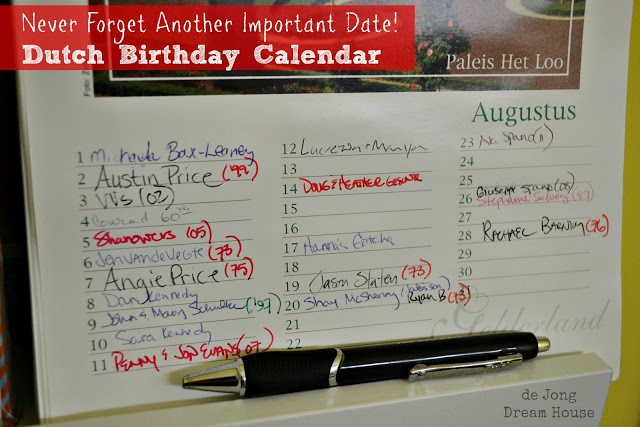 Never Forget Another Important Date!
Dutch Birthday Calendar
Paleis Het Loo
Augustus
1 Michaela Box-Leaney
2 Austin Price ('99)
3 (02)
4 Conrad 60
5 Showers (05)
6 Jen VandeVegte (73)
7 Angie Price (75)
8 Dan Kennedy
9 John & Mary Schuller ('97)
10 Sara Kennedy
11 Penny & Jon Evans (07)
12 Lucrezia +
13
14 Doug & Heather
15
16
17 Hannis Gotcha
18
19 Jason Staten (73)
20 Shay McSherry / Ryan B (73)
21
22
23 Spano (11)
24
25 Giuseppe Spano (08)
26 Stephanie (87)
27
28 Rachael (76)
29
30
Gelderland
de Jong
Dream House